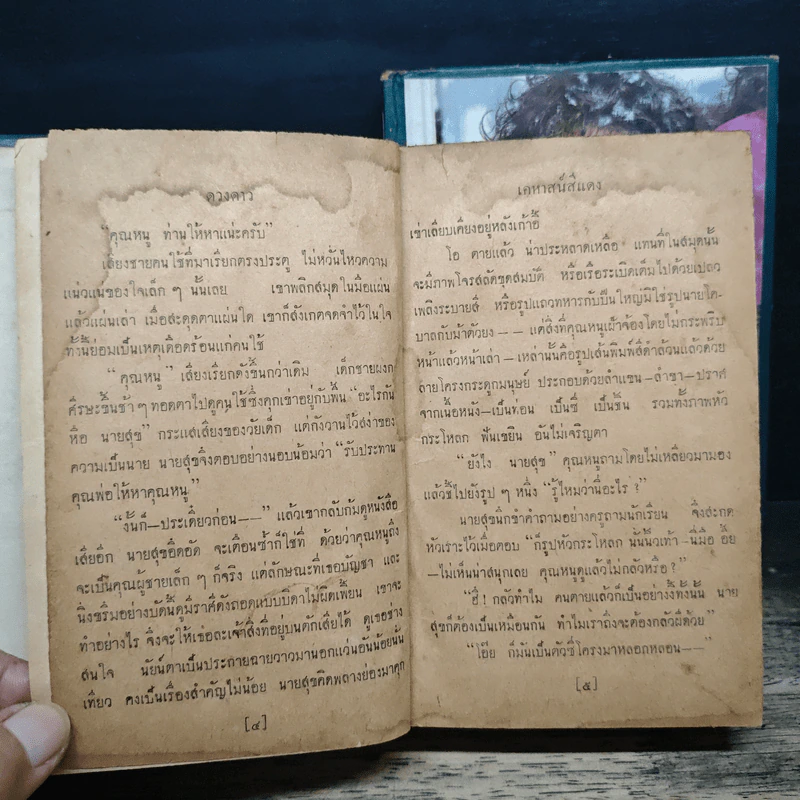 ดวงดาว
"คุณหนู ท่านให้หาแน่ะครับ"
เสียงชายคนใช้ที่มาเรียกตรงประตู ไม่หวั่นไหวความ
แน่วแน่ของใจเล็ก ๆ นั้นเลย เขาพลิกสมุดในมือแผ่น
แล้วแผ่นเล่า เมื่อสะดุดตาแผ่นใด เขาก็สังเกตจดจำไว้ในใจ
ทั้งนี้ย่อมเป็นเหตุเดือดร้อนแก่คนใช้
"คุณหนู" เสียงเรียกดังขึ้นกว่าเดิม เด็กชายผงก
ศีรษะขึ้นช้า ๆ ทอดตาไปดูคนใช้ซึ่งคุกเข่าอยู่กับพื้น "อะไรกัน
หือ นายสุข" กระแสเสียงของวัยเด็ก แต่กังวานไว้สง่าของ
ความเป็นนาย นายสุขจึงตอบอย่างนอบน้อมว่า "รับประทาน
คุณพ่อให้หาคุณหนู"
"งั้นก็—ประเดี๋ยวก่อน——" แล้วเขากลับก้มดูหนังสือ
เสียอีก นายสุขอึดอัด จะเตือนซ้ำก็ใช่ที่ ด้วยว่าคุณหนูถึง
จะเป็นคุณผู้ชายเล็ก ๆ ก็จริง แต่ลักษณะที่เธอบัญชา และ
นิ่งขรึมอย่างบัดนี้ดูมีราศีดังถอดแบบบิดาไม่ผิดเพี้ยน เขาจะ
ทำอย่างไร จึงจะให้เธอละเจ้าสิ่งที่อยู่บนตักเสียได้ ดูเธอช่าง
สนใจ นัยน์ตาเป็นประกายฉายวาวมานอกแว่นอันน้อยนั้น
เทียว คงเป็นเรื่องสำคัญไม่น้อย นายสุขคิดพลางย่องมาคุก
[๔]
เคหาสน์สีแดง
เข่าเลียบเคียงอยู่หลังเก้าอี้
โอ ตายแล้ว น่าประหลาดเหลือ แทนที่ในสมุดนั้น
จะมีภาพโจรสลัดขุดสมบัติ หรือเรือระเบิดเต็มไปด้วยเปลว
เพลิงระบายสี หรือรูปแถวทหารกับปืนใหญ่มิใช่รูปนายโค-
บาลกับม้าตัวยง —— แต่สิ่งที่คุณหนูเฝ้าจ้องโดยไม่กระพริบ
หน้าแล้วหน้าเล่า—เหล่านั้นคือรูปเส้นพิมพ์สีดำล้วนแล้วด้วย
ลายโครงกระดูกมนุษย์ ประกอบด้วยลำแขน—ลำขา—ปราศ
จากเนื้อหนัง—เป็นท่อน เป็นซี่ เป็นชิ้น รวมทั้งภาพหัว
กระโหลก ฟันเขยิน อันไม่เจริญตา
"ยังไง นายสุข" คุณหนูถามโดยไม่เหลียวมามอง
แล้วชี้ไปยังรูป ๆ หนึ่ง "รู้ไหมว่านี่อะไร ?"
นายสุขนึกขำคำถามอย่างครูถามนักเรียน จึงสะกด
หัวเราะไว้เมื่อตอบ "ก็รูปหัวกระโหลก นั่นนิ้วเท้า—นี่มือ อื๊อ
—ไม่เห็นน่าสนุกเลย คุณหนูดูแล้วไม่กลัวหรือ ?"
"ฮี่ ! กลัวทำไม คนตายแล้วก็เป็นอย่างงี้ทั้งนั้น นาย
สุขก็ต้องเป็นเหมือนกัน ทำไมเราถึงจะต้องกลัวผีด้วย"
"โอ๊ย ก็มันเป็นตัวซี่โครงมาหลอกหลอน——"
[๕]